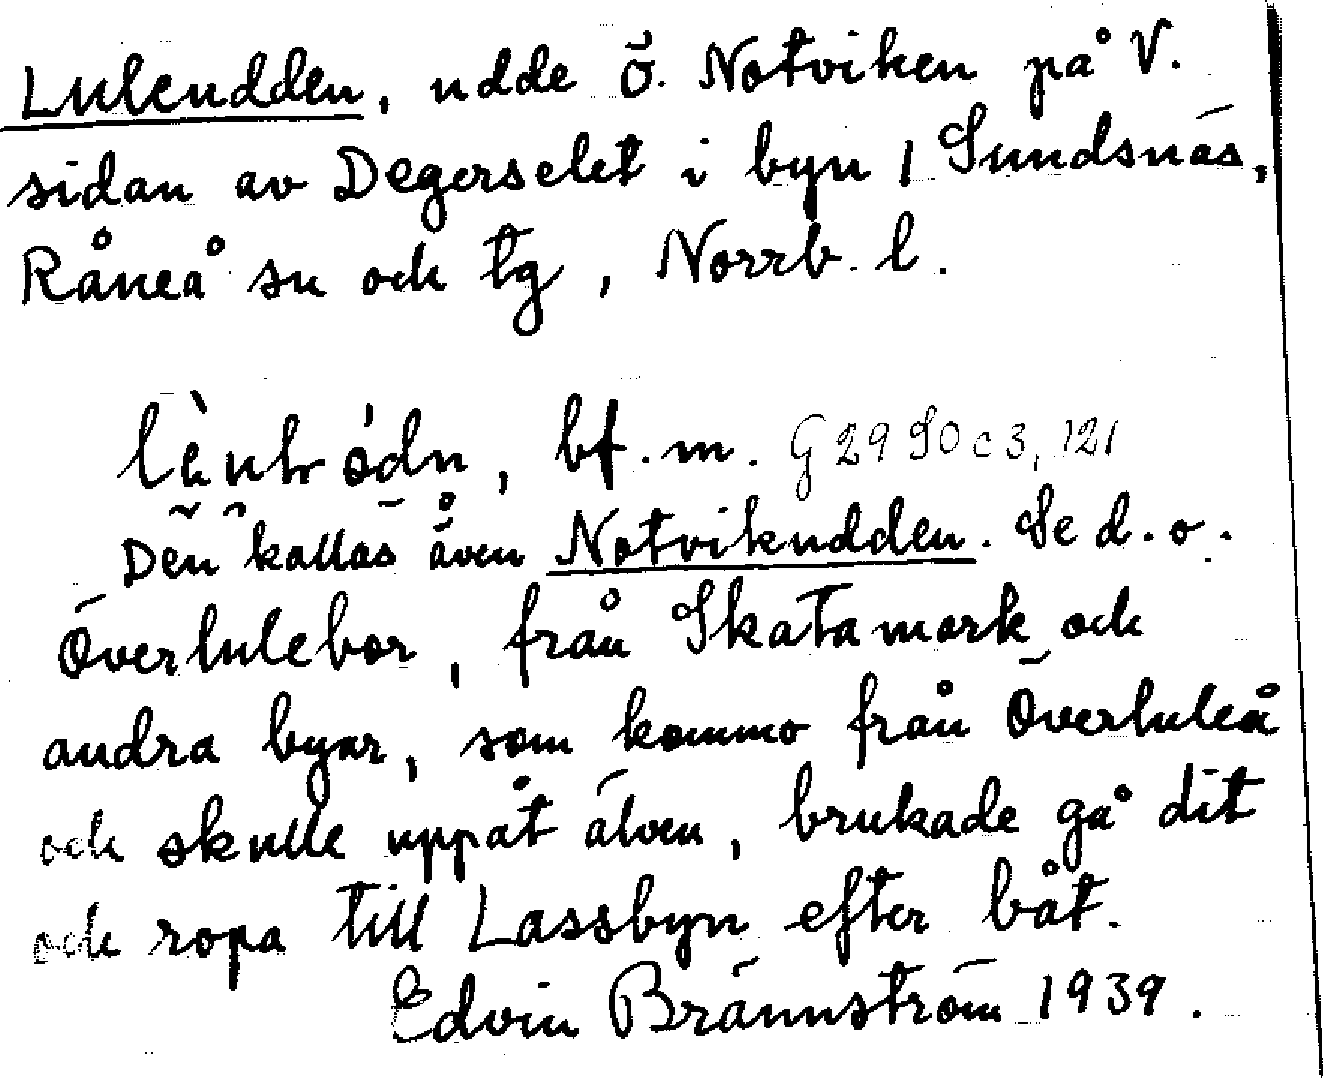 Luleudden, udde ö. Notviken på V.
sidan av Degerselet i byn 1 Sundsnäs,
Råneå sn och tg, Norrb. l.
bf. m. G 29 SO c 3, 121
Den kallas även Notvikudden. Se d. o.
Överlulebor, från Skatamark och
andra byar, som kommo från Överluleå
och skulle uppåt älven, brukade gå dit
och ropa till Lassbyn efter båt.
Edvin Brännström 1939.